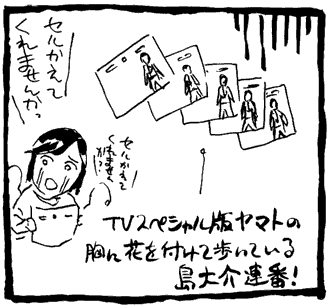 セルかえて
くれませんか?
セルかえて
くれません
か?
TVスペシャル版ヤマトの
胸に花を付けて歩いている
島大介連番!